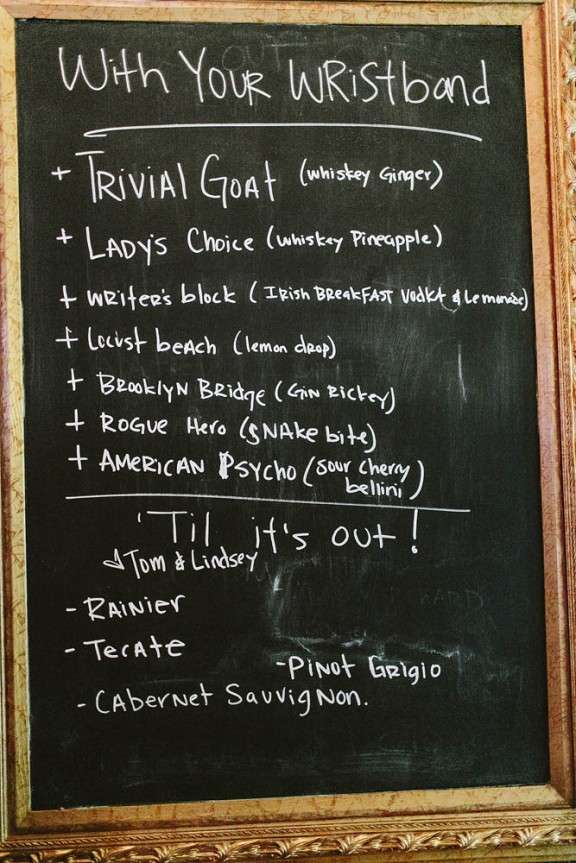 With Your Wristband
+ Trivial Goat (whiskey Ginger)
+ Lady's Choice (whiskey Pineapple)
+ writer's block (Irish Breakfast Vodka & Lemonade)
+ Locust beach (lemon drop)
+ Brooklyn Bridge (Gin Rickey)
+ Rogue Hero (Snake bite)
+ American Psycho (Sour cherry
bellini)
'Til it's out!
Tom & Lindsey
- Rainier
- Tecate
- Pinot Grigio
- Cabernet Sauvignon.